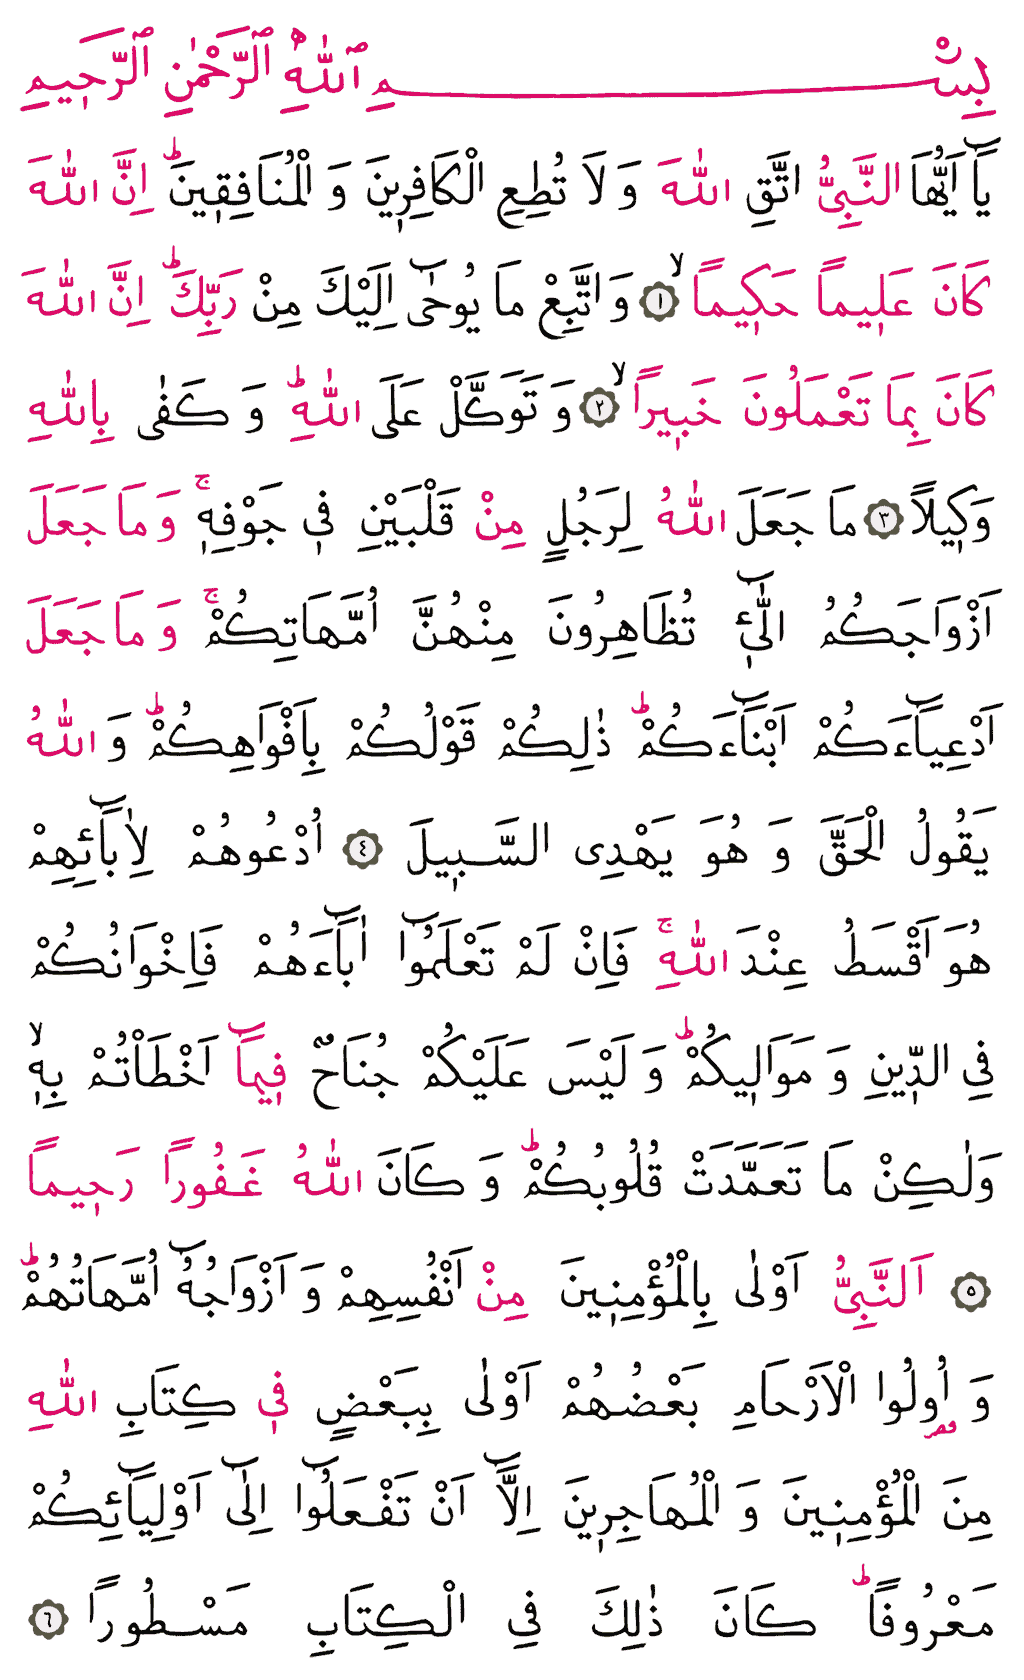 بِسْـــــــــــــمِ ٱللّٰهِ ٱلرَّحْمٰنِ ٱلرَّح۪يمِ
يَٓا اَيُّهَا النَّبِيُّ اتَّقِ اللّٰهَ وَ لَا تُطِعِ الْكَافِر۪ينَ وَ الْمُنَافِق۪ينَۜ اِنَّ اللّٰهَ
كَانَ عَل۪يماً حَك۪يماًۙ ﴿١﴾ وَ اتَّبِعْ مَا يُوحٰٓى اِلَيْكَ مِنْ رَبِّكَۜ اِنَّ اللّٰهَ
كَانَ بِمَا تَعْمَلُونَ خَب۪يراًۙ ﴿٢﴾ وَ تَوَكَّلْ عَلَى اللّٰهِۜ وَ كَفٰى بِاللّٰهِ
وَك۪يلاً ﴿٣﴾ مَا جَعَلَ اللّٰهُ لِرَجُلٍ مِنْ قَلْبَيْنِ ف۪ي جَوْفِه۪ۚ وَ مَا جَعَلَ
اَزْوَاجَكُمُ الّٰٓـ۪ٔي تُظَاهِرُونَ مِنْهُنَّ اُمَّهَاتِكُمْۚ وَ مَا جَعَلَ
اَدْعِيَٓاءَكُمْ اَبْنَٓاءَكُمْۜ ذٰلِكُمْ قَوْلُكُمْ بِاَفْوَاهِكُمْۜ وَ اللّٰهُ
يَقُولُ الْحَقَّ وَ هُوَ يَهْدِى السَّب۪يلَ ﴿٤﴾ اُدْعُوهُمْ لِاٰبَٓائِهِمْ
هُوَ اَقْسَطُ عِنْدَ اللّٰهِۚ فَاِنْ لَمْ تَعْلَمُٓوا اٰبَٓاءَهُمْ فَاِخْوَانُكُمْ
فِي الدّ۪ينِ وَ مَوَال۪يكُمْۜ وَ لَيْسَ عَلَيْكُمْ جُنَاحٌ ف۪يمَٓا اَخْطَأْتُمْ بِه۪ۙ
وَلٰكِنْ مَا تَعَمَّدَتْ قُلُوبُكُمْۜ وَ كَانَ اللّٰهُ غَفُوراً رَح۪يماً
﴿٥﴾ اَلنَّبِيُّ اَوْلٰى بِالْمُؤْمِن۪ينَ مِنْ اَنْفُسِهِمْ وَ اَزْوَاجُهُٓ اُمَّهَاتُهُمْۜ
وَ اُو۬لُوا الْاَرْحَامِ بَعْضُهُمْ اَوْلٰى بِبَعْضٍ ف۪ي كِتَابِ اللّٰهِ
قصر
مِنَ الْمُؤْمِن۪ينَ وَ الْمُهَاجِر۪ينَ اِلَّٓا اَنْ تَفْعَلُٓوا اِلٰٓى اَوْلِيَٓائِكُمْ
مَعْرُوفاًۜ كَانَ ذٰلِكَ فِي الْكِتَابِ مَسْطُوراً ﴿٦﴾